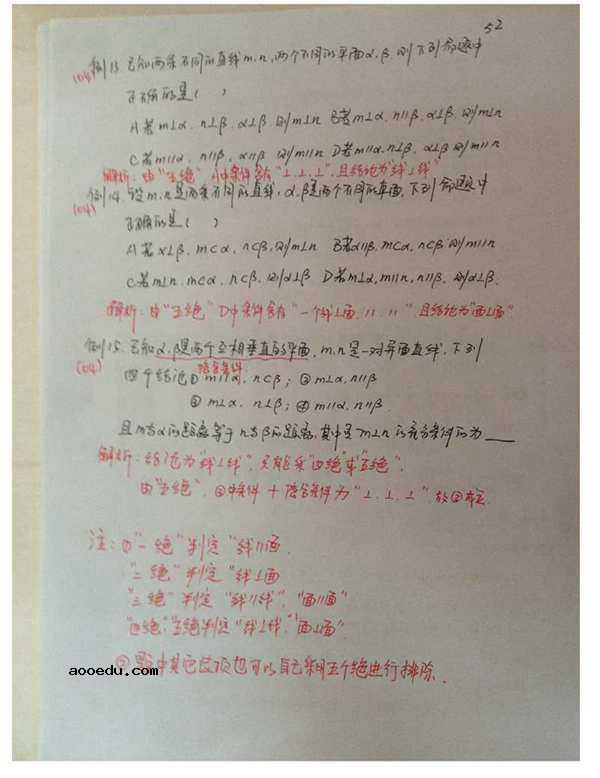 52
例13. 已知两条不同的直线m.n,两个不同的平面α.β.则下列命题中
(04)
正确的是( )
A若m⊥α. n⊥β. α⊥β. 则m⊥n B若m⊥α. n∥β. α⊥β. 则m⊥n
C若m∥α. n∥β. α∥β 则m∥n D若m∥α.n⊥β. α⊥β 则m∥n
解析:由"五绝" A中条件含有"⊥.⊥.⊥".且结论为"线⊥线"
例14. 设m.n是两条不同的直线. α.β是两个不同的平面. 下列命题中
(04)
正确的是( )
A若α⊥β. m⊂α. n⊂β.则m⊥n B若α∥β. m⊂α. n⊂β 则m∥n
C若m⊥n. m⊂α. n⊂β. 则α⊥β D若m⊥α,m∥n, n∥β. 则α⊥β.
解析:由"五绝" D中条件含有"一个线⊥面. ∥. ∥". 且结论为"面⊥面"
例15. 已知α.β是两个互相垂直的平面. m.n是一对异面直线. 下列
(04)
隐含条件
四个结论① m∥α. n⊂β; ② m⊥α. n∥β
③ m⊥α. n⊥β; ④ m∥α. n∥β
且m与α的距离等于n与β的距离.其中是m⊥n的充分条件的为____
解析:结论为"线⊥线". 只能采"四绝"或"五绝".
由"五绝". ③中条件 + 隐含条件为"⊥.⊥.⊥". 故③成立.
注:①"一绝"判定"线∥面.
"二绝"判定"线⊥面
"三绝"判定"线∥线". "面∥面"
"四绝"."五绝"判定"线⊥线"."面⊥面".
②题中其它选项也可以自己采用五个绝进行排除.
aooedu.com